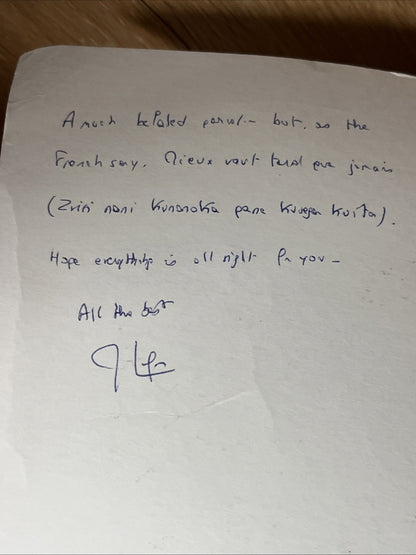 A much belated parcel - but, as the
French say, Mieux vaut tard que jamais
(Zviri nani kunonoka pane kurega kuita).
Hope everything is all right for you -
All the best